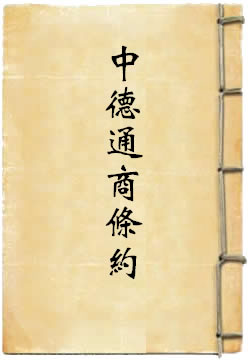 中德通商條約